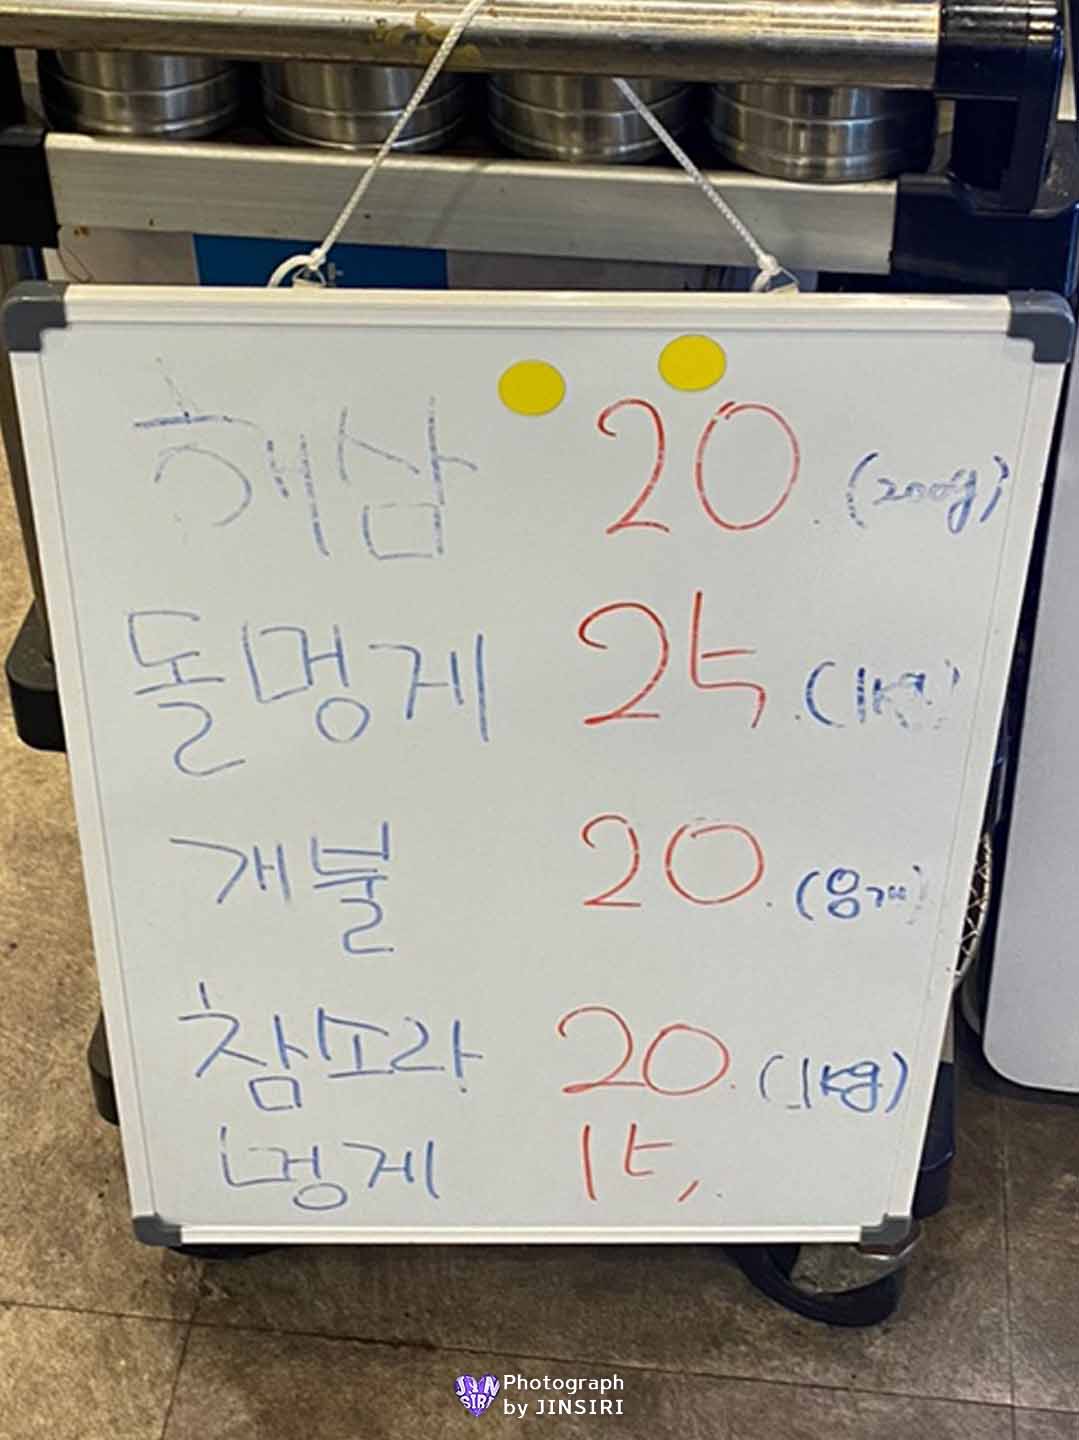 해삼 20. (200g)
돌멍게 25. (1kg)
개불 20. (8개)
참소라 20. (1kg)
멍게 15.
Photograph
by JINSIRI
JIN
SIRI